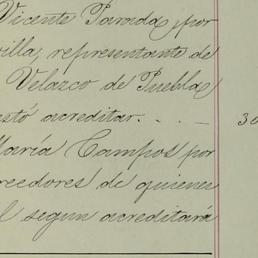 Vicente Parada, por
villa, representante de
Velazco de Puebla
estó acreditar. . . -
30
María Campos por
creedores de quienes
l segun acreditará